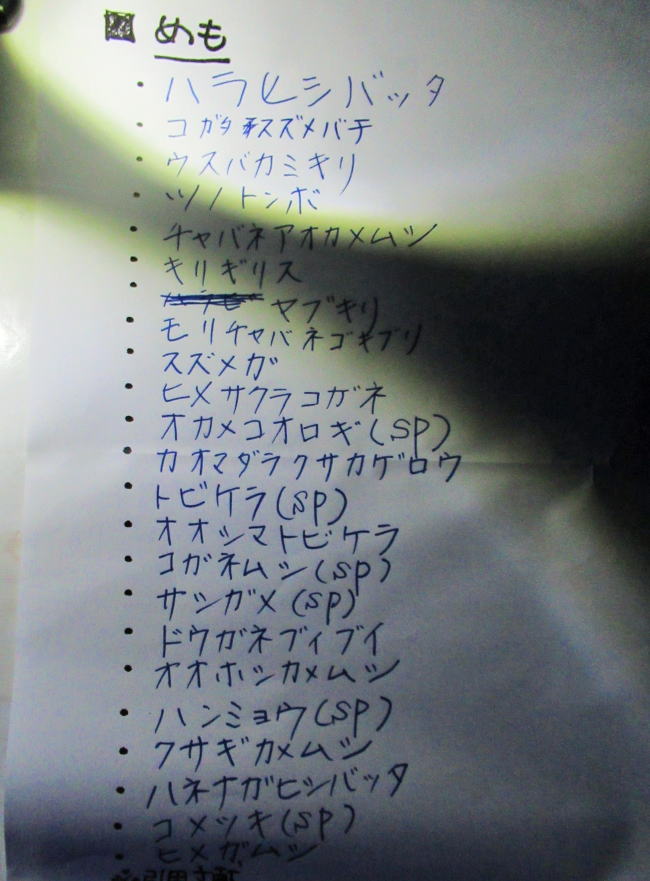 めも
ハラヒシバッタ
コガタスズメバチ
ウスバカミキリ
ツノトンボ
チャバネアオカメムシ
キリギリス
ヤブキリ
モリチャバネゴキブリ
スズメガ
ヒメサクラコガネ
オカメコオロギ(sp)
カオマダラクサカゲロウ
トビケラ(sp)
オオシマトビケラ
コガネムシ(sp)
サシガメ(sp)
ドウガネブイブイ
オオホシカメムシ
ハンミョウ(sp)
クサギカメムシ
ハネナガヒシバッタ
コメツキ(sp)
ヒメガムシ